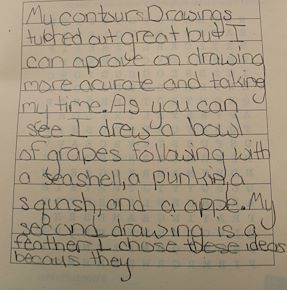 My contours Drawings
turned out great but I
can aprove on drawing
more acurate and taking
my time. As you can
see I drew a bowl
of grapes following with
a seashell, a punkin, a
squash, and a appe. My
second drawing is a
feather I chose these ideas
becaus they